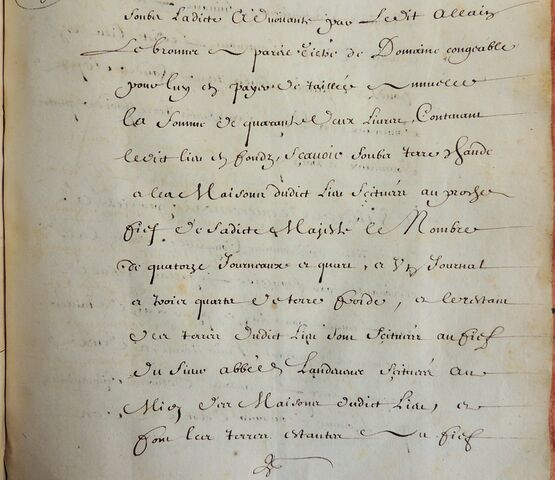 soubz ladicte advouante par ledit Allain
Le bronnec a pareil tiltre de Domaine congeable
pour luy en payer de taillée annuelle
la somme de quarante deux livres, Contenant
ledict lieu en fondz, sçavoir soubz terre chaude
et les Maisons dudict lieu scittuées au proche
fief de sadicte Majesté le Nombre
de quatorze Journeaux et quart, et un Journal
et trois quarts de terre froide, et le restant
des terres dudict lieu sont scittuées au fief
du sieur abbé de Landevenec scittuée au
Midy des Maisons dudict lieu, et
sont les terres estantes au fief